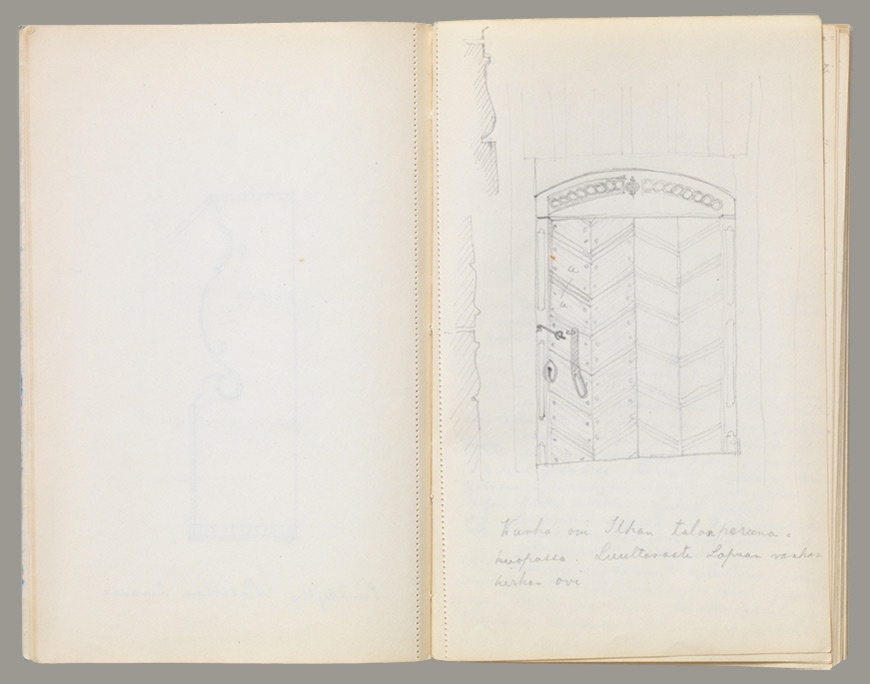 a
a
Vanha ovi Ilkan talon peruna-
kuopassa. Luultavasti Lapuan vanhan
kirkon ovi